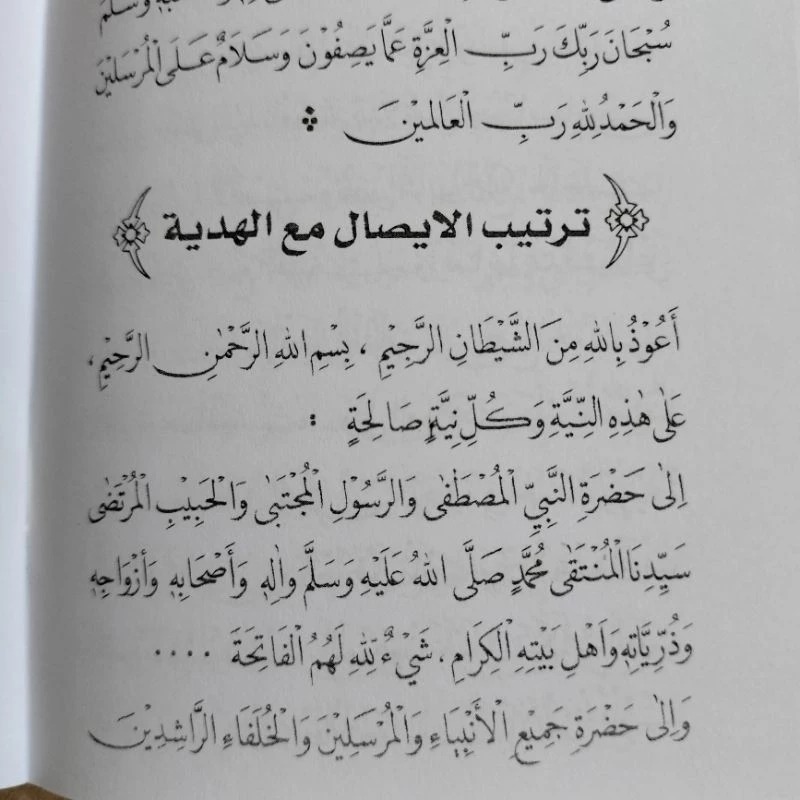 وَسَلَّمَ
سُبْحَانَ رَبِّكَ رَبِّ الْعِزَّةِ عَمَّا يَصِفُوْنَ وَسَلَامٌ عَلَى الْمُرْسَلِيْنَ
وَالْحَمْدُ لِلّٰهِ رَبِّ الْعَالَمِيْنَ
ترتيب الايصال مع الهدية
أَعُوْذُ بِاللّٰهِ مِنَ الشَّيْطَانِ الرَّجِيْمِ ، بِسْمِ اللّٰهِ الرَّحْمٰنِ الرَّحِيْمِ،
عَلٰى هٰذِهِ النِّيَّةِ وَكُلِّ نِيَّةٍ صَالِحَةٍ :
اِلٰى حَضْرَةِ النَّبِيِّ الْمُصْطَفٰى وَالرَّسُوْلِ الْمُجْتَبٰى وَالْحَبِيْبِ الْمُرْتَضٰى
سَيِّدِنَا الْمُنْتَقٰى مُحَمَّدٍ صَلَّى اللّٰهُ عَلَيْهِ وَسَلَّمَ وَاٰلِهٖ وَأَصْحَابِهٖ وَأَزْوَاجِهٖ
وَذُرِّيَّاتِهٖ وَاَهْلِ بَيْتِهِ الْكِرَامِ ، شَيْءٌ لِلّٰهِ لَهُمُ الْفَاتِحَةَ ....
وَاِلٰى حَضْرَةِ جَمِيْعِ الْأَنْبِيَاءِ وَالْمُرْسَلِيْنَ وَالْخُلَفَاءِ الرَّاشِدِيْنَ